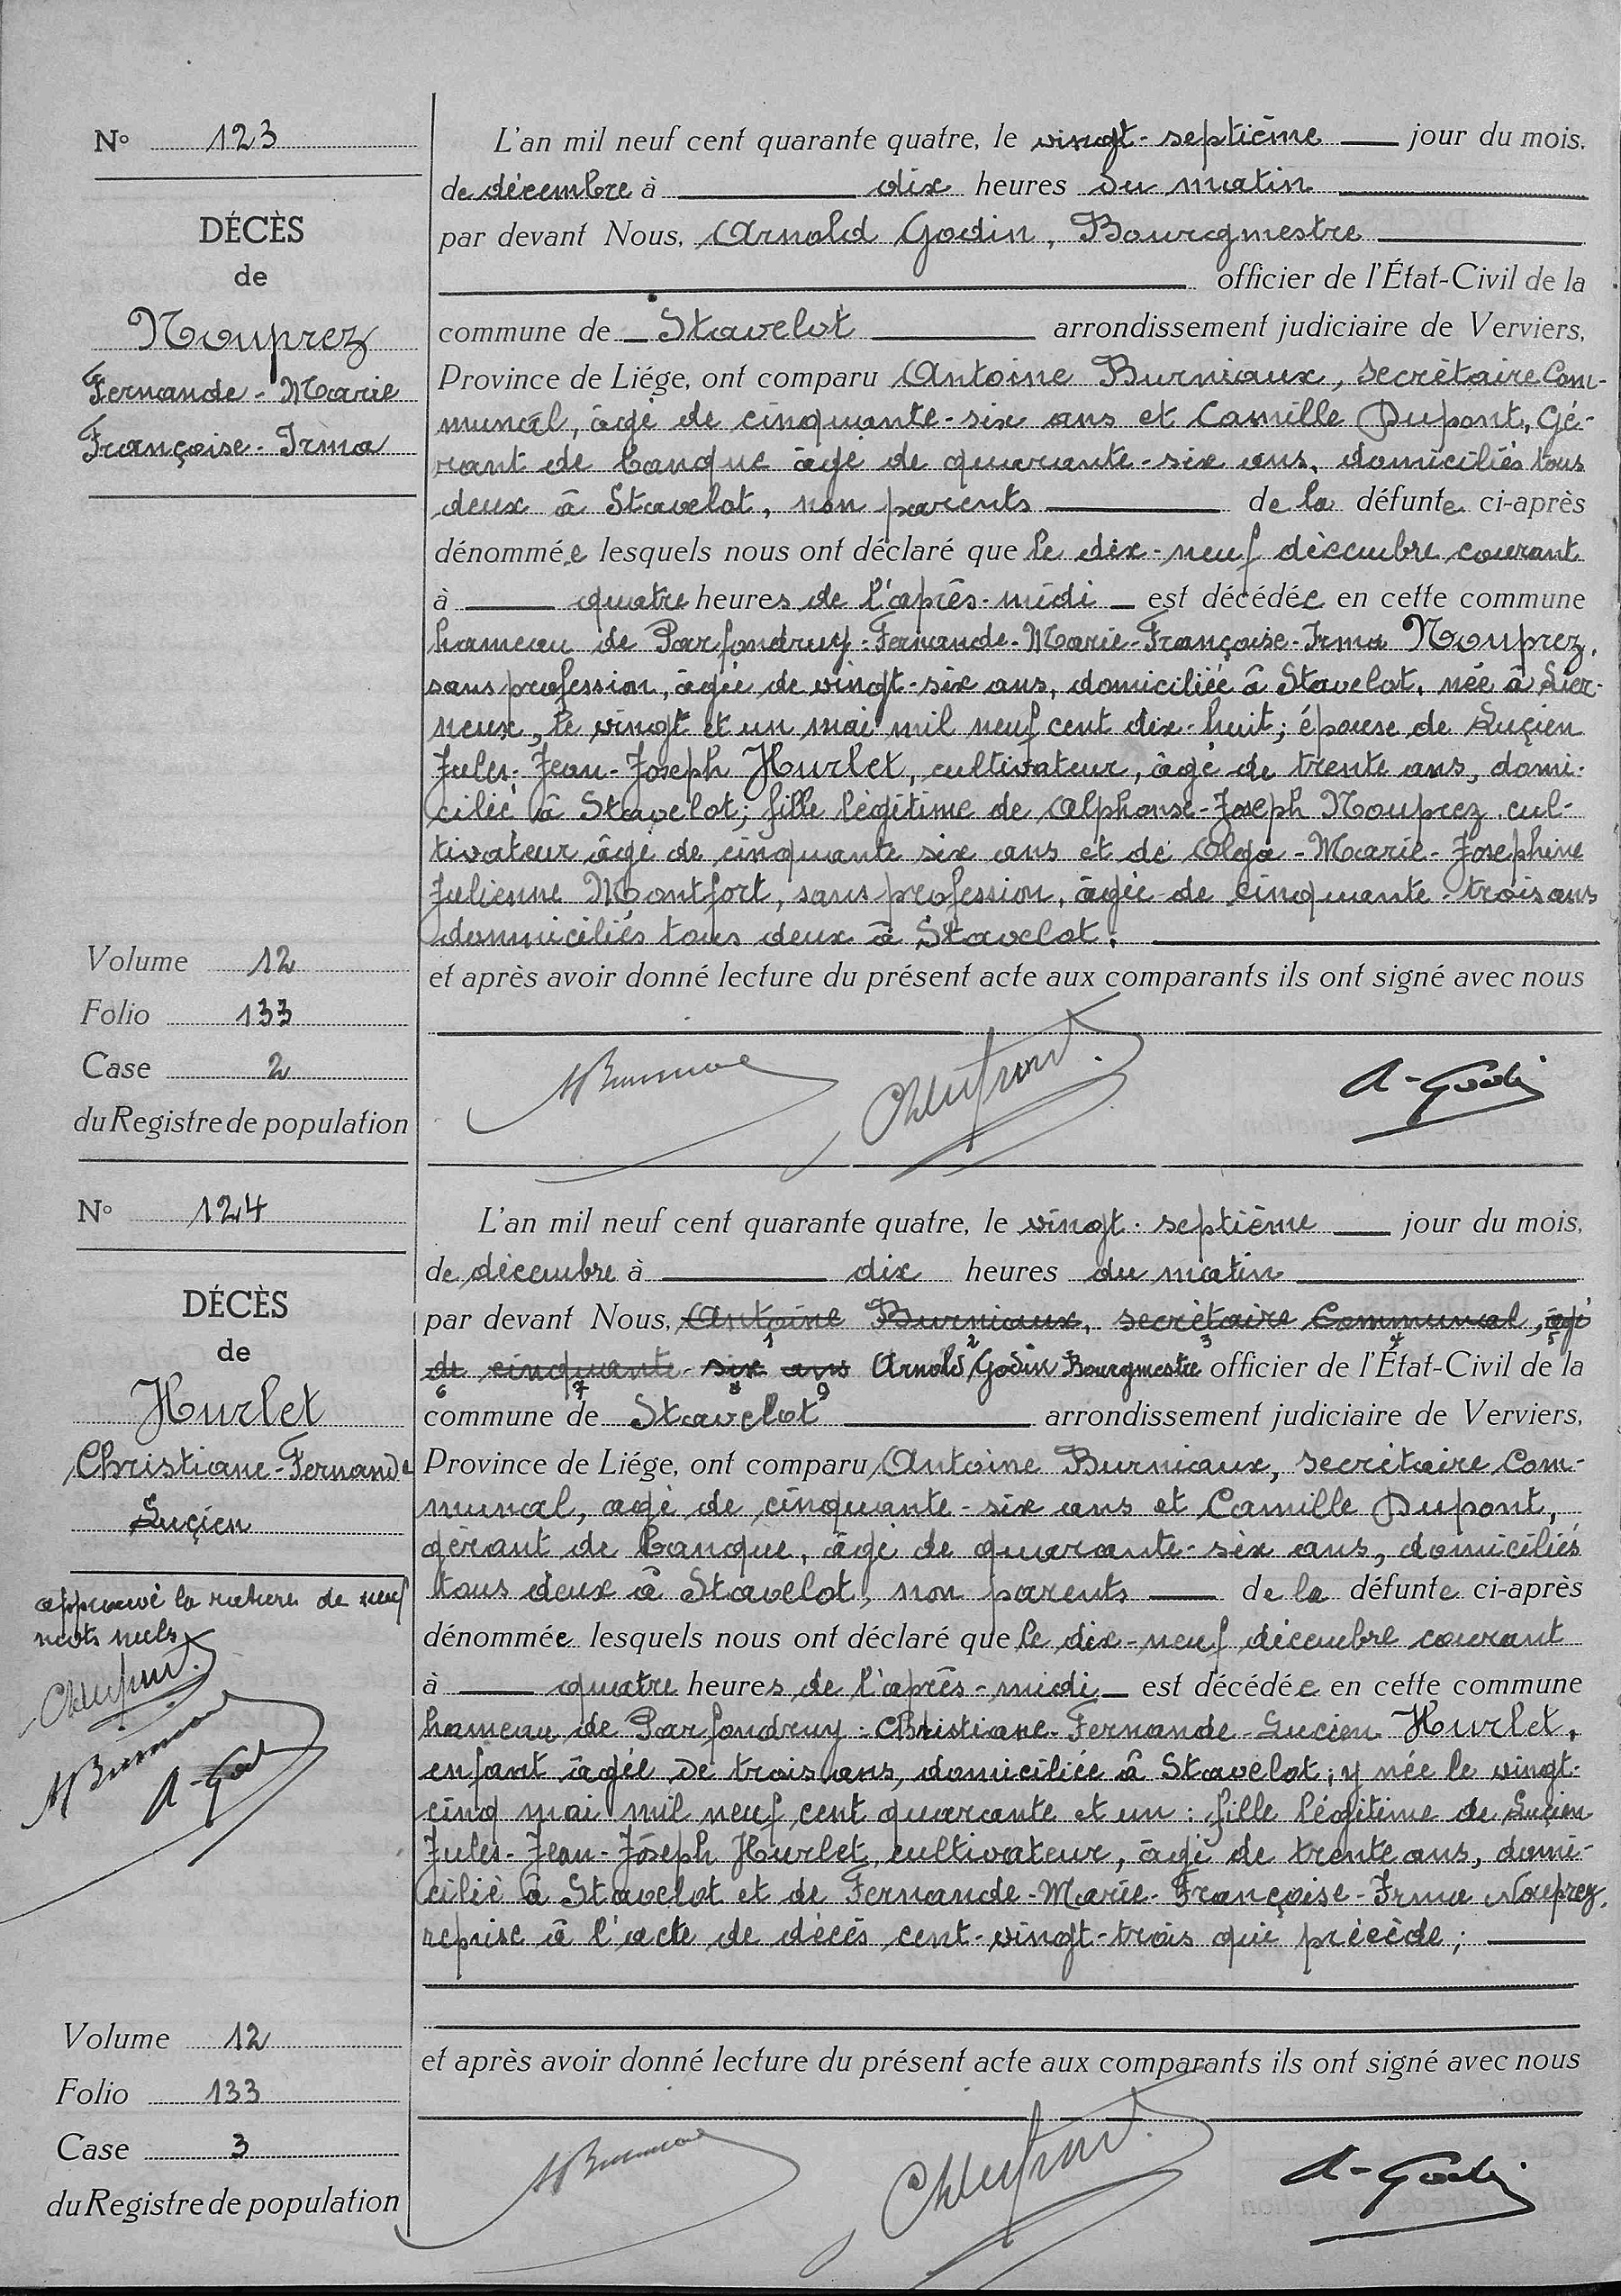 N° 123
DÉCÈS
de
Nouprez
Fernande-Marie
Françoise-Irma
Volume 12
Folio 133
Case 2
du Registre de population
L'an mil neuf cent quarante quatre, le vingt-septième jour du mois,
de décembre à dix heures du matin
par devant Nous, Arnold Godin, Bourgmestre
officier de l'État-Civil de la
commune de Stavelot arrondissement judiciaire de Verviers,
Province de Liége, ont comparu Antoine Burniaux, secrétaire Com-
munal, âgé de cinquante-six ans et Camille Dupont, Gé-
rant de banque âgé de quarante-six ans, domiciliés tous
deux à Stavelot, non parents de la défunte ci-après
dénommée lesquels nous ont déclaré que le dix-neuf décembre courant
à quatre heures de l'après-midi est décédée en cette commune
hameau de Parfondruy-Fernande-Marie-Françoise-Irma Nouprez,
sans profession, âgée de vingt-six ans, domiciliée à Stavelot, née à Lier-
neux, le vingt et un mai mil neuf cent dix-huit; épouse de Luçien
Jules-Jean-Joseph Hurlet, cultivateur, âgé de trente ans, domi-
cilié à Stavelot; fille légitime de Alphonse-Joseph Nouprez cul-
tivateur âgé de cinquante six ans et de Olga-Marie-Josephine
Julienne Montfort, sans profession, âgée de cinquante-trois ans
domiciliés tous deux à Stavelot.
et après avoir donné lecture du présent acte aux comparants ils ont signé avec nous
ABurniaux CDupont. A-Godin
N° 124
DÉCÈS
de
Hurlet
Christiane-Fernande
Luçien
approuvé la rature de neuf
mots nuls
CDupont.
ABurniaux
A-God
Volume 12
Folio 133
Case 3
du Registre de population
L'an mil neuf cent quarante quatre, le vingt-septième jour du mois,
de décembre à dix heures du matin
par devant Nous, Antoine Burniaux, secrétaire Communal, âgé
1 2 3 4 5
de cinquante-six ans Arnold Godin Bourgmestre officier de l'État-Civil de la
6 7 8 9
commune de Stavelot arrondissement judiciaire de Verviers,
Province de Liége, ont comparu Antoine Burniaux, secrétaire Com-
munal, agé de cinquante-six ans et Camille Dupont,
gérant de banque, âgé de quarante-six ans, domiciliés
tous deux à Stavelot, non parents de la défunte ci-après
dénommée lesquels nous ont déclaré que le dix-neuf décembre courant
à quatre heures de l'après-midi est décédée en cette commune
hameau de Parfondruy: Christiane-Fernande-Lucien Hurlet,
enfant âgée de trois ans, domiciliée à Stavelot; y née le vingt-
cinq mai mil neuf cent quarante et un: fille légitime de Luçien
Jules-Jean-Joseph Hurlet, cultivateur, âgé de trente ans, domi-
cilié à Stavelot et de Fernande-Marie-Françoise-Irma Nouprez,
reprise à l'acte de décés cent-vingt-trois qui précède;
et après avoir donné lecture du présent acte aux comparants ils ont signé avec nous
ABurniaux CDupont. A-Godin